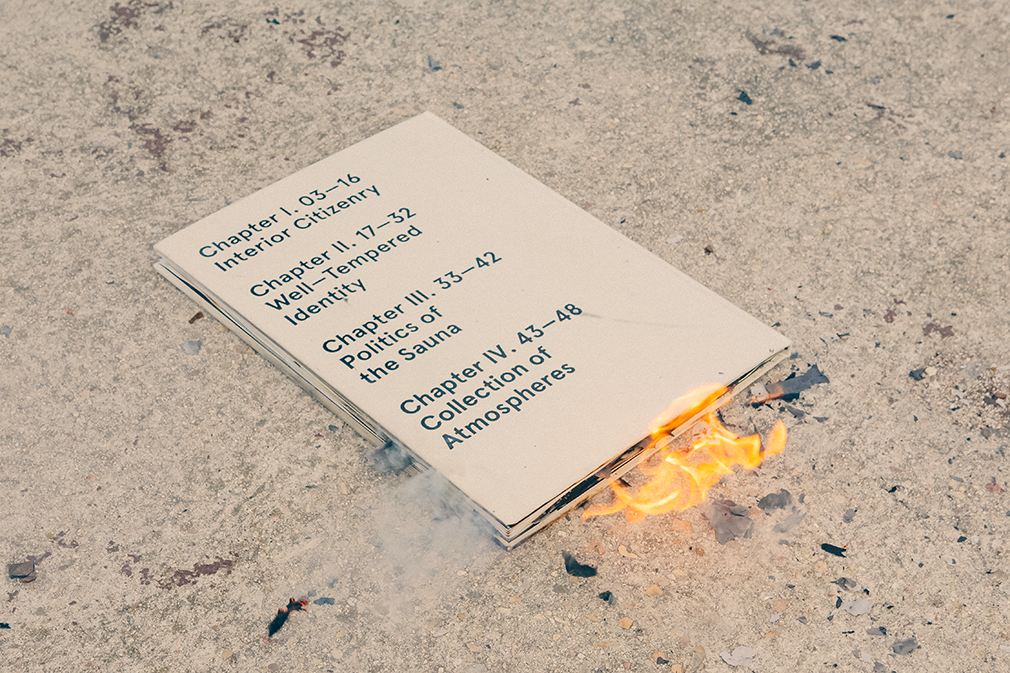 Chapter I. 03–16
Interior Citizenry
Chapter II. 17–32
Well–Tempered
Identity
Chapter III. 33–42
Politics of
the Sauna
Chapter IV. 43–48
Collection of
Atmospheres